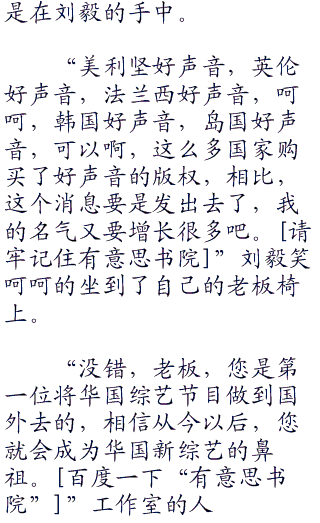 是在刘毅的手中。
“美利坚好声音，英伦
好声音，法兰西好声音，呵
呵，韩国好声音，岛国好声
音，可以啊，这么多国家购
买了好声音的版权，相比，
这个消息要是发出去了，我
的名气又要增长很多吧。[请
牢记住有意思书院]”刘毅笑
呵呵的坐到了自己的老板椅
上。
“没错，老板，您是第
一位将华国综艺节目做到国
外去的，相信从今以后，您
就会成为华国新综艺的鼻
祖。[百度一下“有意思书
院”]”工作室的人